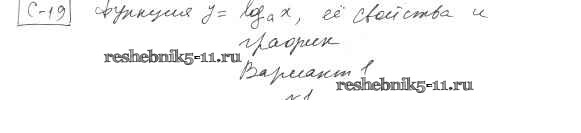 С-19 Функция y = logₐx, её свойства и
график
reshebnik5-11.ru
Вариант 1
reshebnik5-11.ru
№1